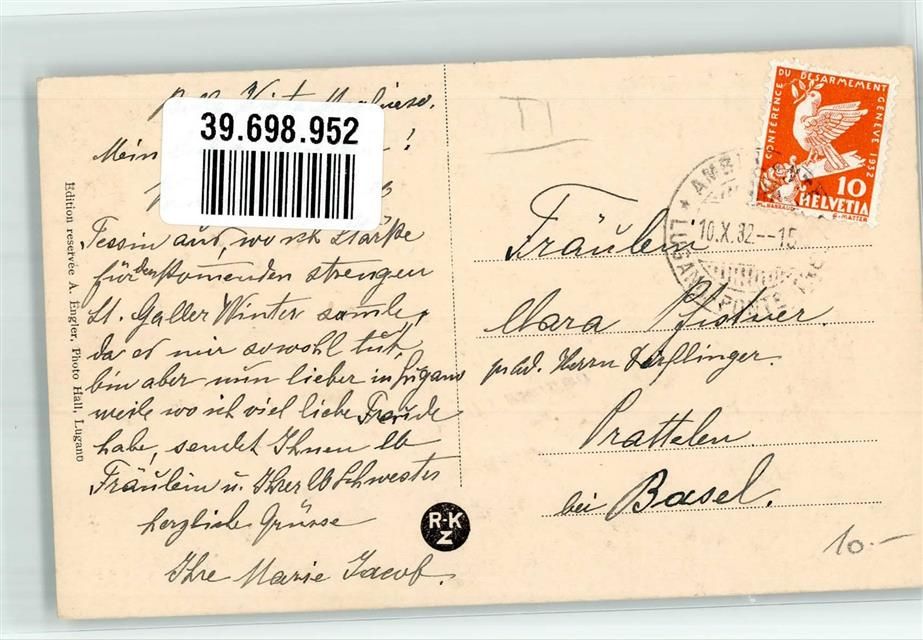 39.698.952
Mein !
Tessin aus, wo ich Stärke
für den komenden strengen
St. Galler Winter samle,
da es mir sowohl tut,
bin aber nun lieber in Lugano
weile wo ich viel liebe Freude
habe, sendet Ihnen lb
Fräulein u. Ihrer lb Schwester
herzliche Grüsse
Ihre Marie Jacob.
Edition reservée A. Engler, Photo Hall, Lugano
R-K
Z
TI
CONFÉRENCE DU DÉSARMEMENT GENÈVE 1932
10
HELVETIA
AMB
10.X.32.--15
Fräulein
Clara Pfistner.
p. ad. Herrn Dörflinger
Prattelen
bei Basel.
10.-